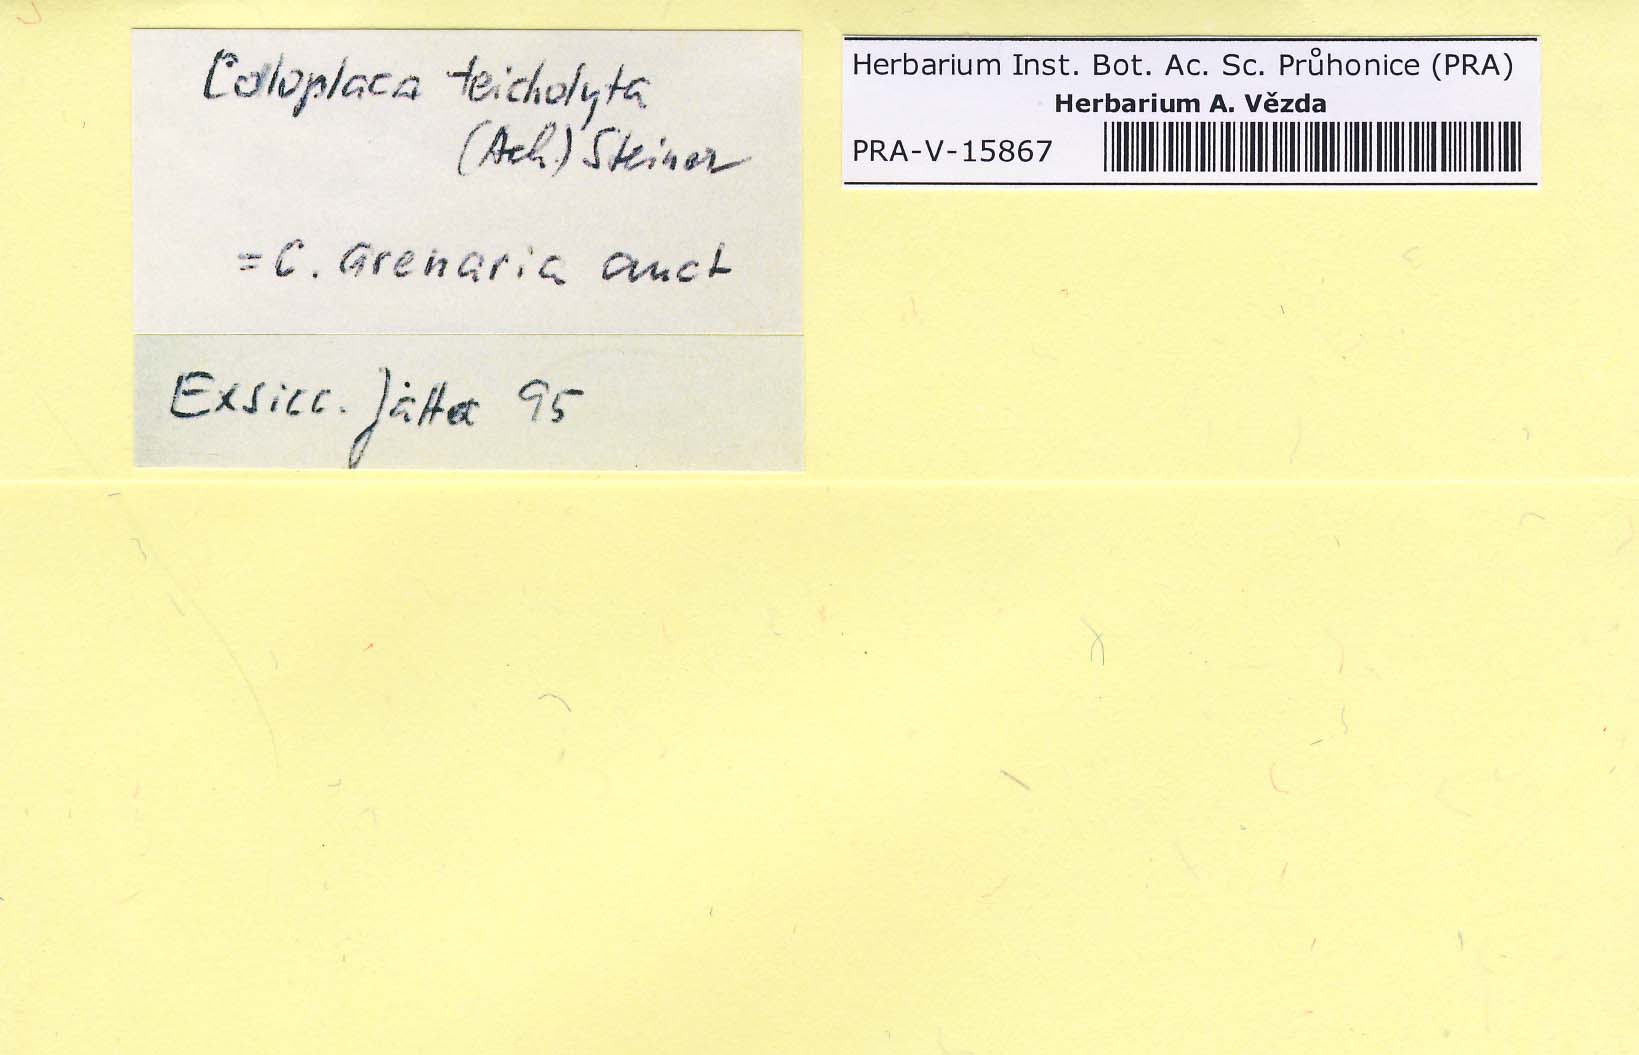 Caloplaca teicholyta
(Ach.) Steiner
= C. arenaria auct
Exsicc. Jatta 95
Herbarium Inst. Bot. Ac. Sc. Průhonice (PRA)
Herbarium A. Vězda
PRA-V-15867